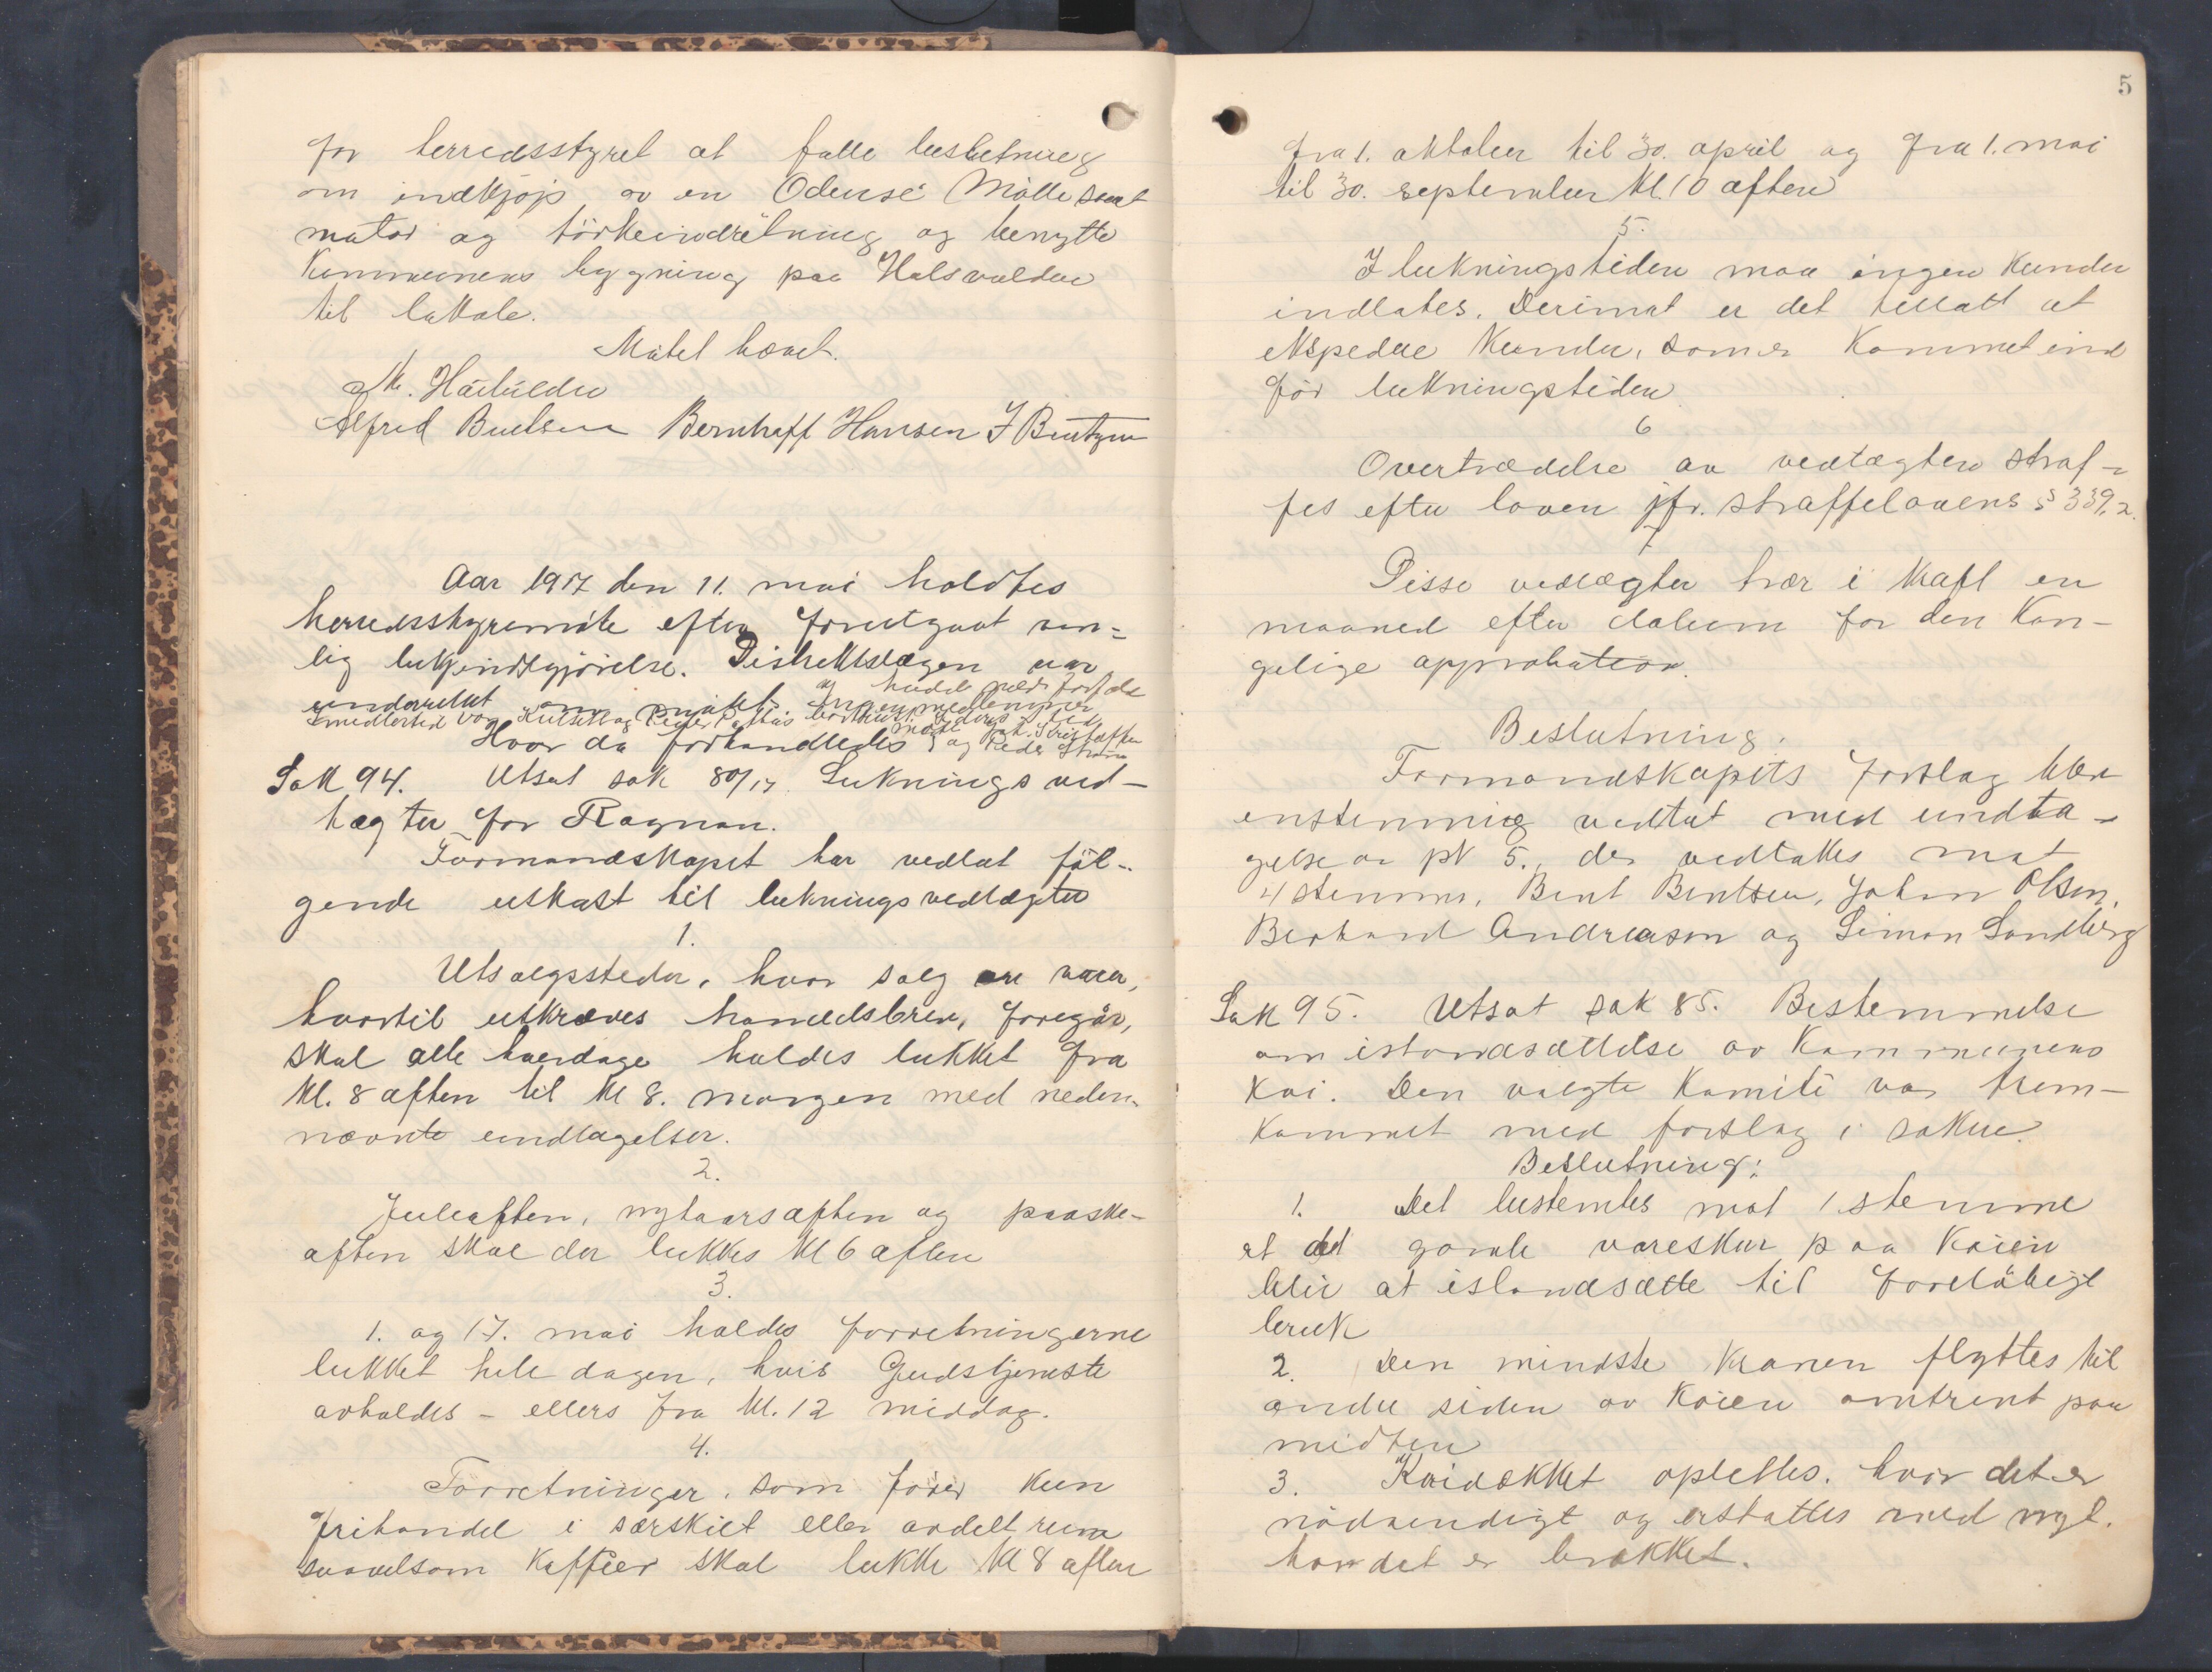 for herredsstyret at fatte beslutning
om indkjøp av en Odense Mølle samt
motor og tørkeindrætning og benytte
Kommunens bygning paa Halsvolden
til lokale.
Møtet hævet.
Alfred Bentsen Bernhoff Hansen J Bentzen
Aar 1917 den 11. mai holdtes
herredsstyremøte efter forutgaat van-
lig bekjendtgjørelse. Distriktslægen var
underrettet om møtet. og hadde meldt forfald
Hvor da forhandledes
og Peder Strøm
Sak 94. Utsat sak 80/17. Luknings ved-
tægter for Rognan.
Formandskapet har vedtat føl-
gende utkast til lukningsvedtægter
1.
Utsalgssteder, hvor salg av varer,
hvortil utkræves handelsbrev, foregår,
skal alle hverdage holdes lukket fra
kl. 8 aften til kl 8. morgen med neden-
nævnte undtagelser.
2.
Juleaften, nytaarsaften og paaske-
aften skal der lukkes kl 6 aften
3.
1. og 17. mai holdes forretningerne
lukket hele dagen, hvis Gudstjeneste
avholdes - ellers fra kl. 12 middag.
4.
Forretninger, som fører kun
frihandel i særskilt eller avdelt rum
saavelsom kaffeer skal lukke kl 8 aften
5
fra 1. oktober til 30. april og fra 1. mai
til 30. september kl. 10 aften
5.
I lukningstiden maa ingen kunder
indlates. Derimot er det tillatt at
ekspedere kunder, som er kommet ind
før lukningstiden
6
Overtrædelse av vedtægten straf-
fes efter loven jfr. straffelovens § 339,2.
7
Disse vedtægter trær i kraft en
maaned efter datum for den kon-
gelige approbation.
Beslutning.
Formandskapets forslag blev
enstemmig vedtat med undta-
gelse av pkt 5., der vedtokes mot
4 stemmer, Bent Bentsen, Johan Olsen,
Berhard Andreassen og Simon Sandberg
Sak 95. Utsat sak 85. Bestemmelse
om istandsættelse av Kommunens
Kai. Den valgte Komite var frem-
kommet med forslag i saken.
Beslutning:
1. Det bestemtes mot 1 stemme
at det gamle vareskur paa Kaien
blir at istandsætte til foreløbigt
bruk
2. Den mindste Kranen flyttes til
andre siden av Kaien omtrent paa
midten
3. Kaidækket oprettes, hvor det er
nødvendigt og erstattes med nyt,
hvor det er brækket.